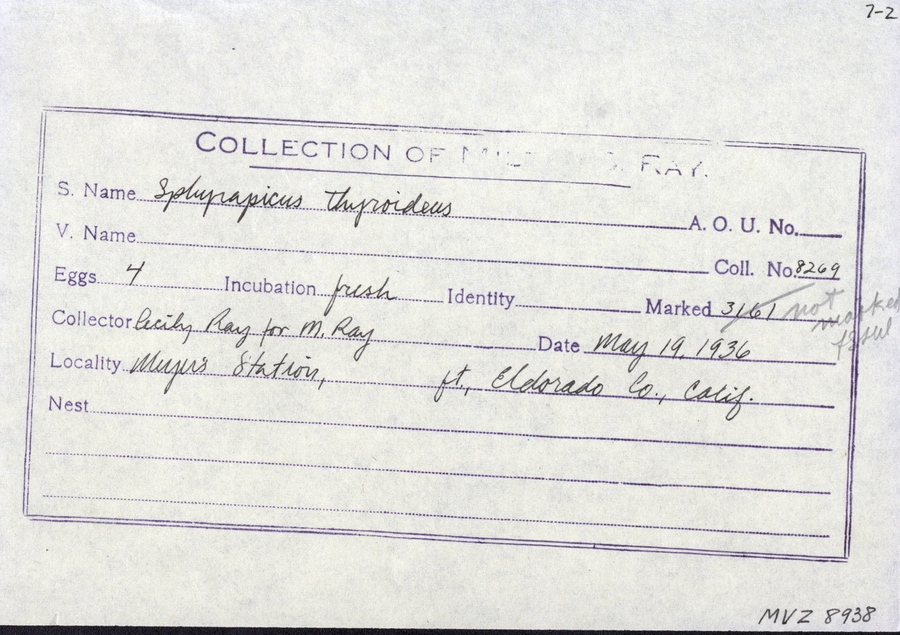 7-2
COLLECTION OF MIL RAY.
S. Name Sphyrapicus thyroideus A. O. U. No.
V. Name Coll. No 8269
Eggs 4 Incubation fresh Identity Marked 3161 not marked
Collector Cecily Ray for M. Ray Date May 19, 1936
Locality Meyer's Station, ft, Eldorado Co., Calif.
Nest
MVZ 8938